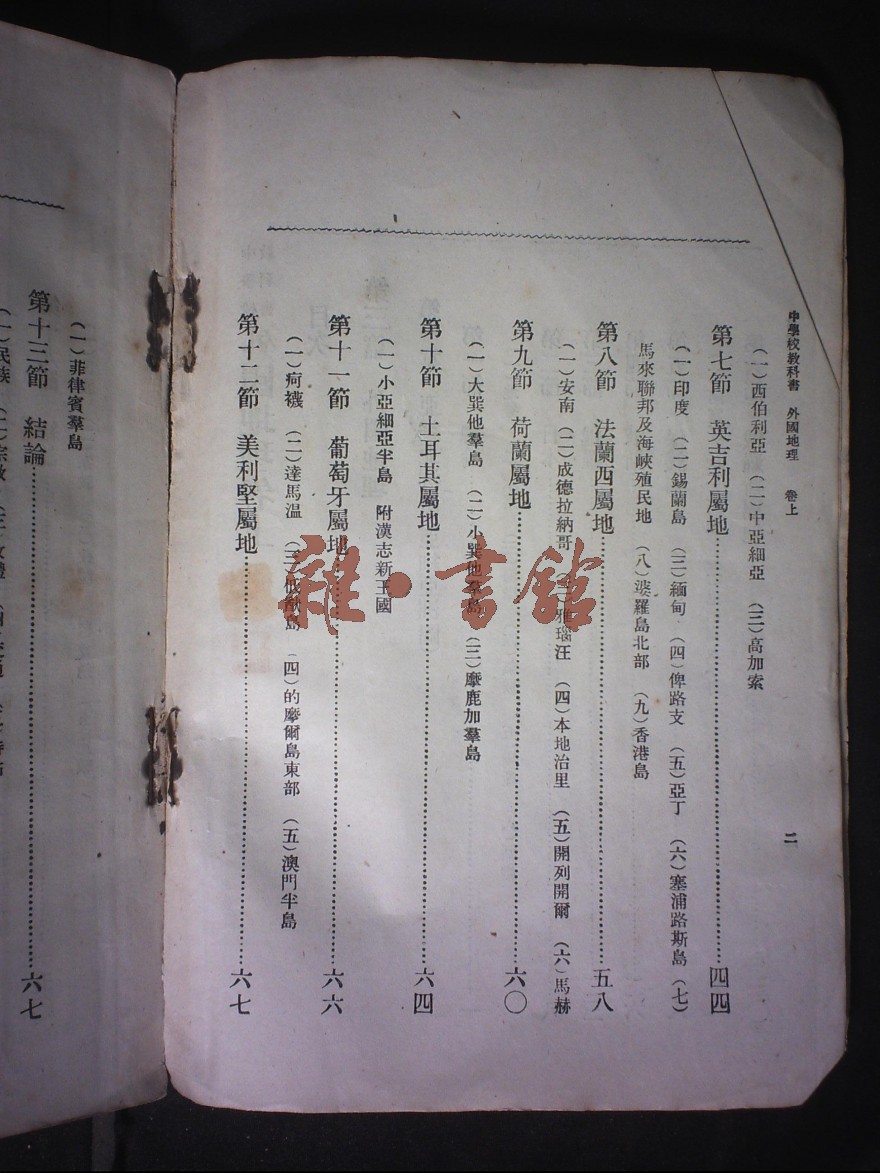 中學校教科書　外國地理　卷上　二
（一）西伯利亞　（二）中亞細亞　（三）高加索
第七節　英吉利屬地…………四四
（一）印度　（二）錫蘭島　（三）緬甸　（四）俾路支　（五）亞丁　（六）塞浦路斯島　（七）
馬來聯邦及海峽殖民地　（八）婆羅島北部　（九）香港島
第八節　法蘭西屬地…………五八
（一）安南　（二）成德拉納哥　（三）雅瑙汪　（四）本地治里　（五）開列開爾　（六）馬赫
第九節　荷蘭屬地…………六〇
（一）大巽他羣島　（二）小巽他羣島　（三）摩鹿加羣島
第十節　土耳其屬地…………六四
（一）小亞細亞半島　附漢志新王國
第十一節　葡萄牙屬地…………六六
（一）疴襪　（二）達馬溫　（三）島　（四）的摩爾島東部　（五）澳門半島
第十二節　美利堅屬地…………六七
（一）菲律賓羣島
第十三節　結論…………六七
（一）民族　（二）宗教　（三）　（四）
雜·書館